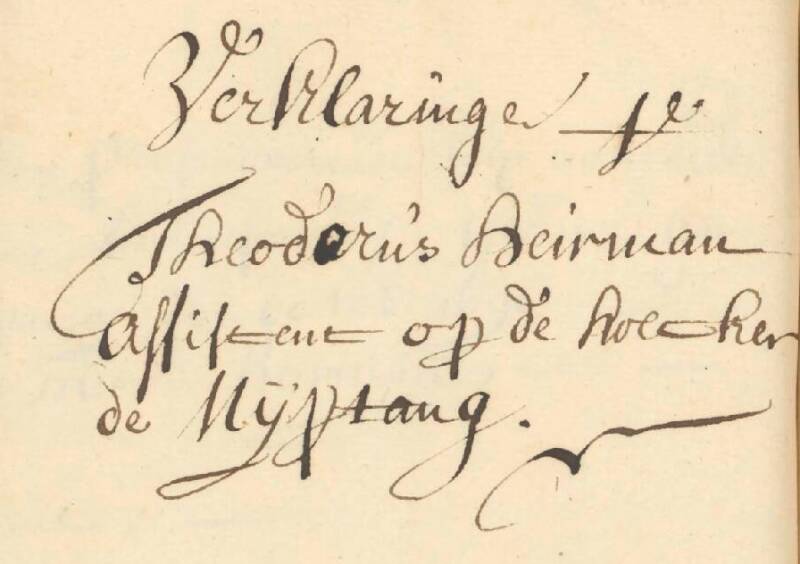 Verklaringe
Theodorus Heirman
Assistent op de hoecker
de Nijptang.